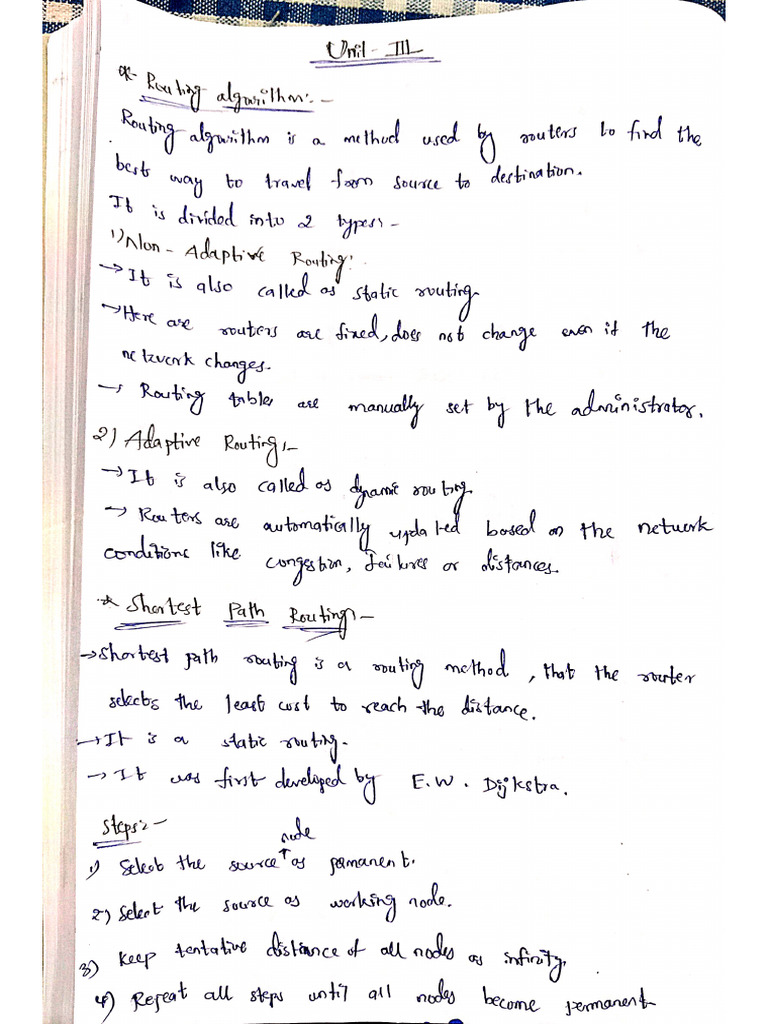 Unit - III
* Routing algorithm:-
Routing algorithm is a method used by routers to find the
best way to travel from source to destination.
It is divided into 2 types:-
1) Non - Adaptive Routing:
→ It is also called as static routing.
→ Here are routers are fixed, does not change even if the
network changes.
→ Routing tables are manually set by the administrator.
2) Adaptive Routing:-
→ It is also called as dynamic routing.
→ Routers are automatically updated based on the network
conditions like congestion, failures or distances.
* Shortest Path Routing:-
→ Shortest path routing is a routing method, that the router
selects the least cost to reach the distance.
→ It is a static routing.
→ It was first developed by E.W. Dijkstra.
Steps:-
node
1) Select the source ↑ as permanent.
2) Select the source as working node.
3) Keep tentative distance of all nodes as infinity.
4) Repeat all steps until all nodes become permanent